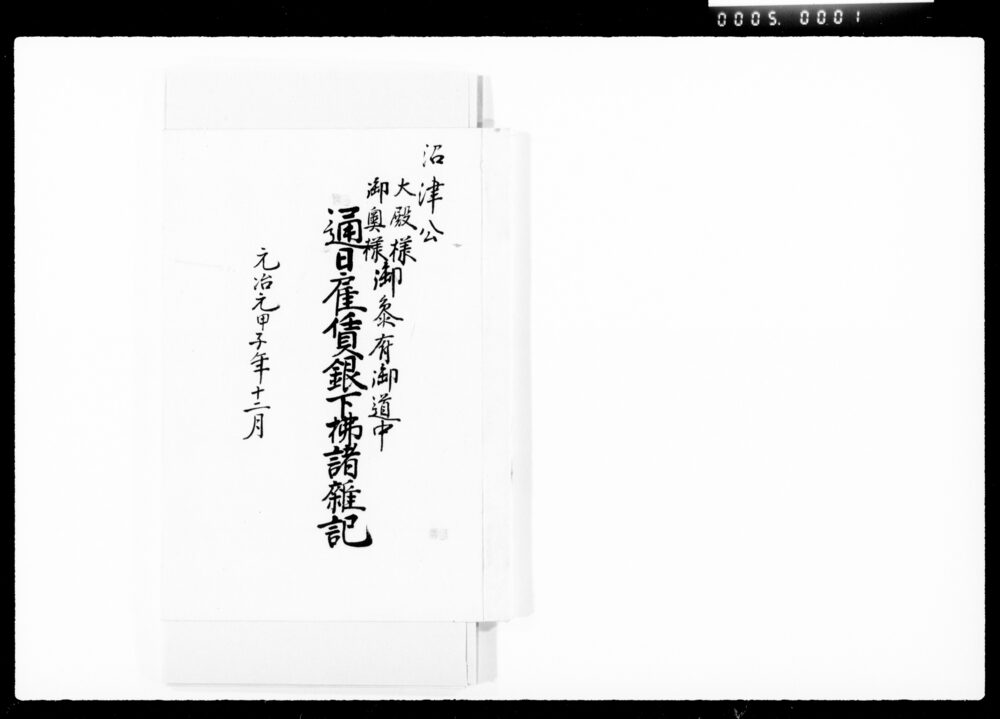 0005. 0001
沼津公
大殿様
御奥様
御参府御道中
通日雇賃銀下拂諸雑記
元治元甲子年十二月